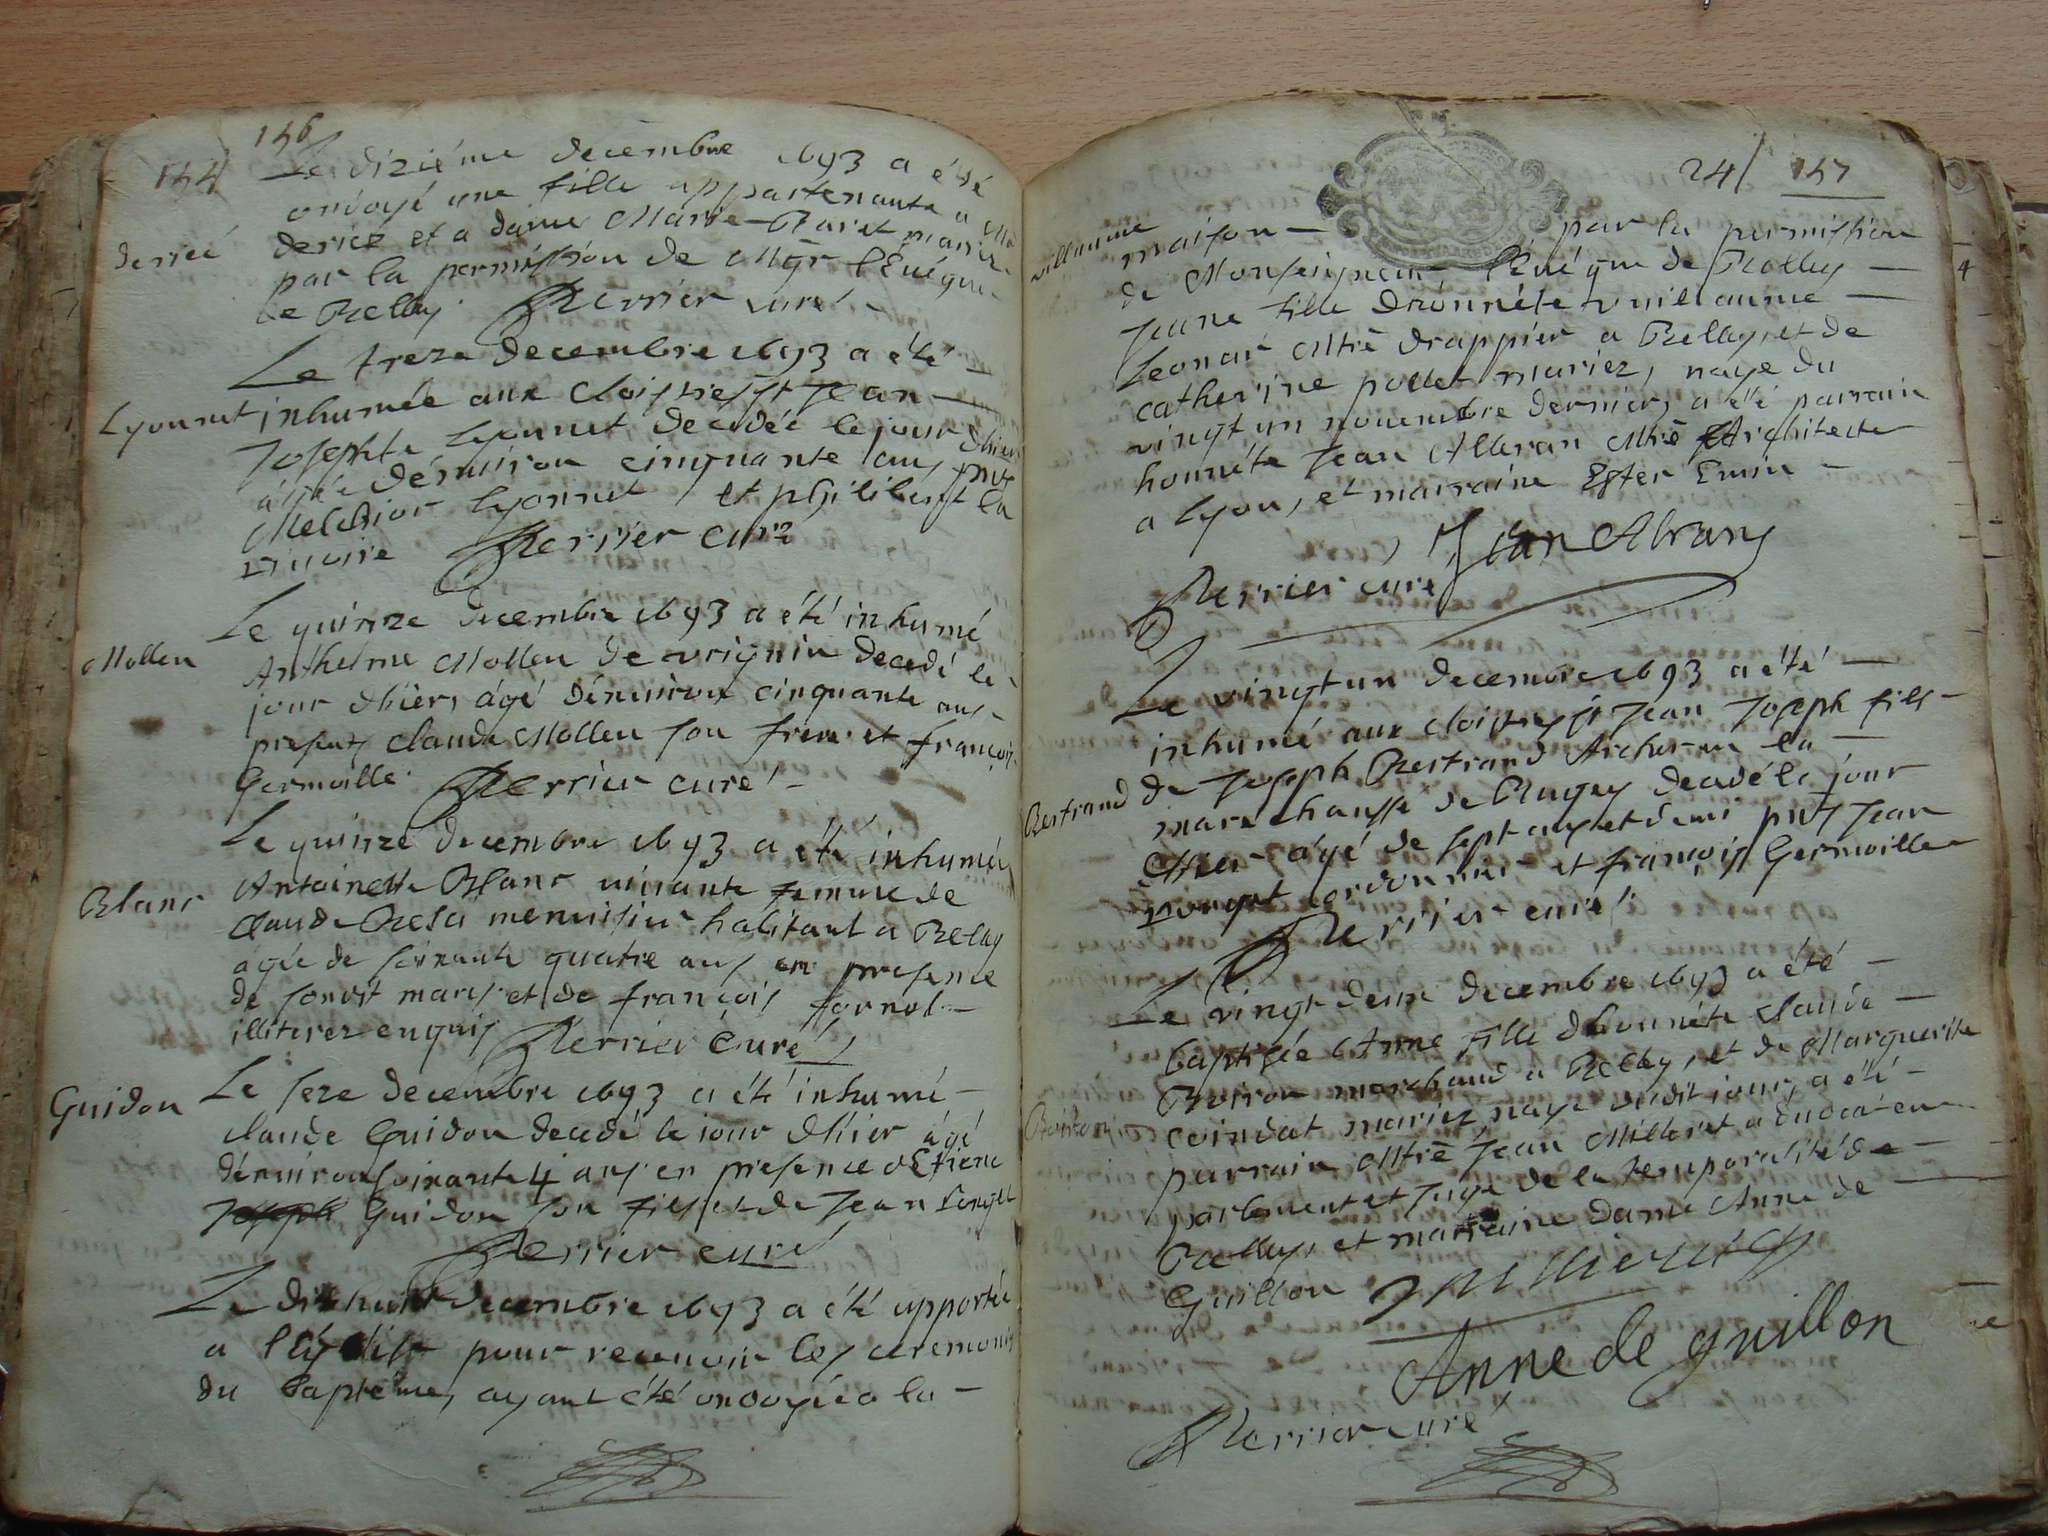 156
154
Le diziéme decembre 1693 a été
ondoyé une fille appartenante a
derieé et a dame Marie mariez
par la permission de Mgr l'Euéque
de Belley Perrier curé
Le treze decembre 1693 a été
Lyonnet inhumée aux cloistres st Jean
Josephte Lyonnet decedée le jour dhier
agée dénuiron cinquante ans pnts
Melchior Lyonnet et philibert la
Perrier curé
Le quinze decembre 1693 a été inhumé
Mollen Anthelme Mollen de vrignin decedé le
jour dhier, agé dénuiron cinquante ans
presents claude Mollen son frere et françois
Germoille Perrier curé
Le quinze decembre 1693 a été inhumée
Blanc Antoinette Blanc viuante femme de
claude menuisier habitant a Belay
agée de soixante quatre ans en presence
de sondit mary et de françois fornol
illiterez enquis Perrier curé
Guidon Le seze decembre 1693 a été inhumé
claude Guidon decedé le jour dhier agé
dénuiron soixante 4 ans en presence dEtiene
Joseph Guidon son fils et de Jean
Perrier curé
Le dixhuit decembre 1693 a été apportée
a l'église pour receuoir les ceremonies
du baptéme, ayant été ondoyée a la
24 157
vuillaume maison par la permission
de Monseigneur l'Euéque de Belley
Jeane fille dhonnéte vuillaume
Leonar Mtre drappier a Bellay, et de
catherine pollet mariez, naye du
vingt un nouembre dernier, a été parrain
honnéte Jean Alleran Mtre Architecte
a Lyon, et marraine Ester Emin
Jean Abrans
Perrier curé
Le vingt un decembre 1693 a été
inhumé aux cloistres st Jean Joseph fils
Bertrand de Joseph Bertrand Archer en la
marechausse de Bugey decedé le jour
dhier agé de sept ans et demi pnts Jean
cordonnier et françois Germoille
Perrier curé
Le vingt deux decembre 1693 a été
baptisée Anne fille dhonnéte claude
Boiron marchand a Belley, et de Marguerite
coindat mariez naye dudit jour, a été
parrain Mtre Jean Milleret aduocat en
parlement et juge de la temporalité de
Belley, et marraine dame Anne de
Guillon
Anne de guillon
Perrier curé